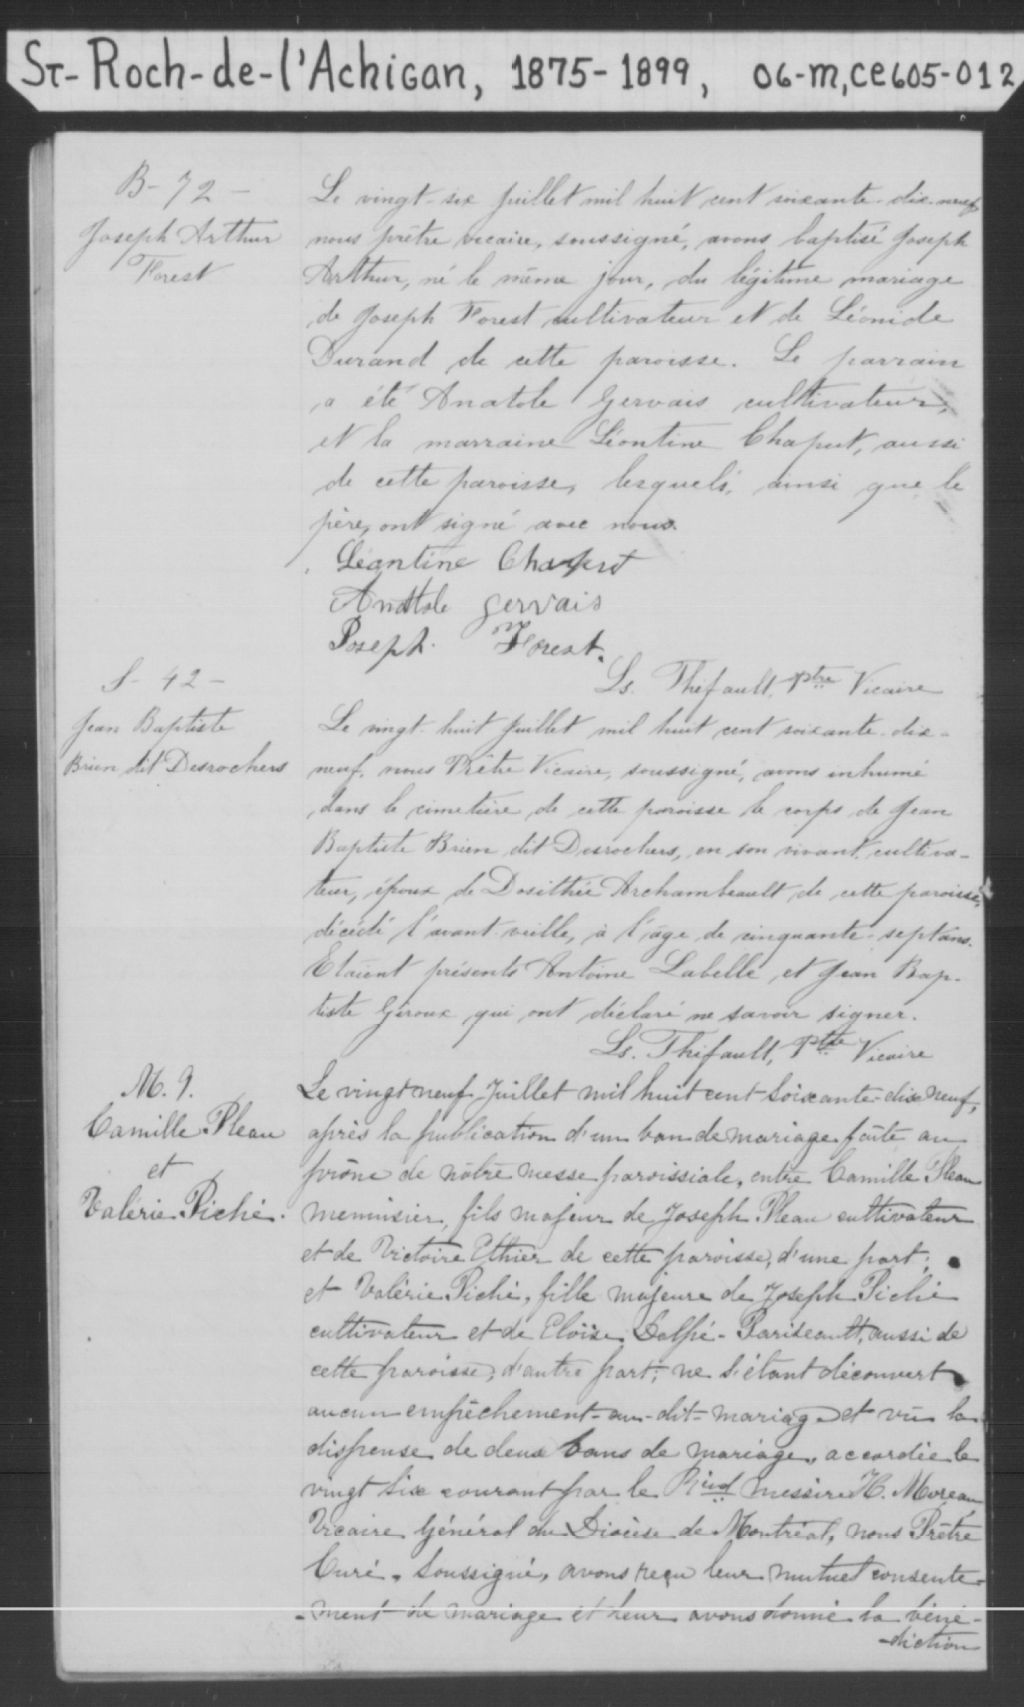 St-Roch-de-l'Achigan, 1875-1899, 06-M,CE605-012
B-72-
Joseph Arthur
Forest
Le vingt-six juillet mil huit cent soixante-dix-neuf
nous prêtre vicaire, soussigné, avons baptisé Joseph
Arthur, né le même jour, du légitime mariage
de Joseph Forest cultivateur et de Léonide
Durand de cette paroisse. Le parrain
a été Anatole Gervais cultivateur,
et la marraine Léontine Chaput, aussi
de cette paroisse, lesquels, ainsi que le
père, ont signé avec nous.
Léontine Chaput
Anatole Gervais
Joseph Forest.
Ls. Thifault, Ptre Vicaire
S-42-
Jean Baptiste
Brien dit Desrochers
Le vingt-huit juillet mil huit cent soixante-dix-
neuf, nous Prêtre Vicaire, soussigné, avons inhumé
dans le cimetière de cette paroisse le corps de Jean
Baptiste Brien dit Desrochers, en son vivant, cultiva-
teur, époux de Dosithée Archambeault de cette paroisse,
décédé l'avant-veille, à l'âge de cinquante-sept ans.
Etaient présents Antoine Labelle, et Jean Bap-
tiste Giroux qui ont déclaré ne savoir signer.
Ls. Thifault, Ptre Vicaire
M. 9.
Camille Pleau
et
Valérie Piché.
Le vingt neuf Juillet mil huit cent soixante-dix neuf,
après la publication d'un ban de mariage faite au
prône de nôtre messe paroissiale, entre Camille Pleau
menuisier, fils majeur de Joseph Pleau cultivateur
et de Victoire Ethier de cette paroisse, d'une part;
et Valérie Piché, fille majeure de Joseph Piché
cultivateur et de Eloïse Dalpé-Pariseault, aussi de
cette paroisse, d'autre part; ne s'étant découvert
aucun empêchement au-dit-mariage et vu la
dispense de deux bans de mariage, accordée le
vingt six courant par le Révd Messire H. Moreau
Vicaire Général du Diocèse de Montréal, nous Prêtre
Curé, soussigné, avons reçu leur mutuel consente-
-ment de mariage et leur avons donné la béné-
-diction